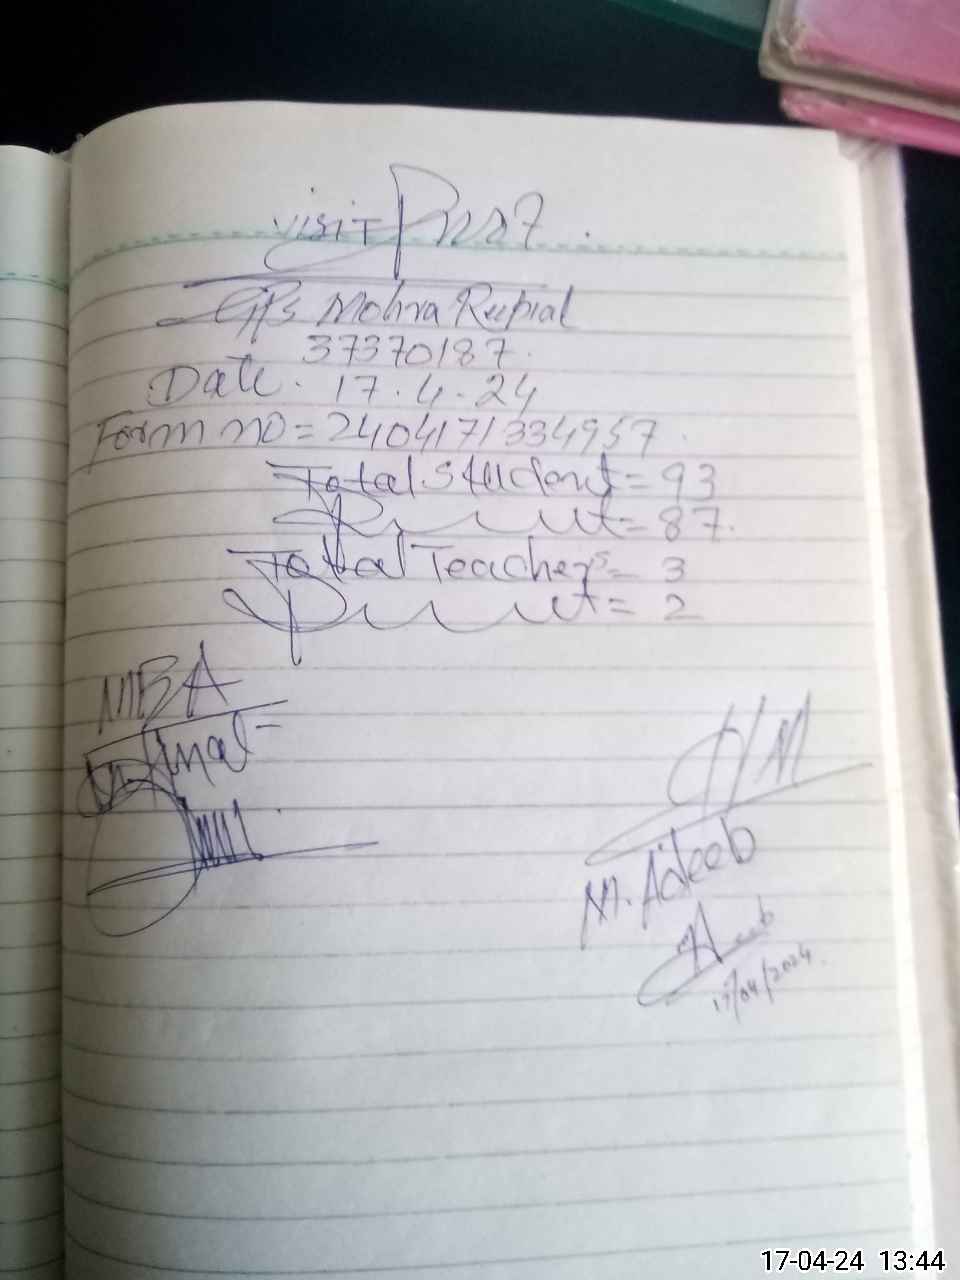 visit
GPS Mohra Rupial
37370187.
Date. 17.4.24
Form no = 2404171334957.
Total Student = 93
= 87.
Total Teachers = 3
= 2
MBA
H/M
M. Adeeb
17/04/2024.
17-04-24 13:44